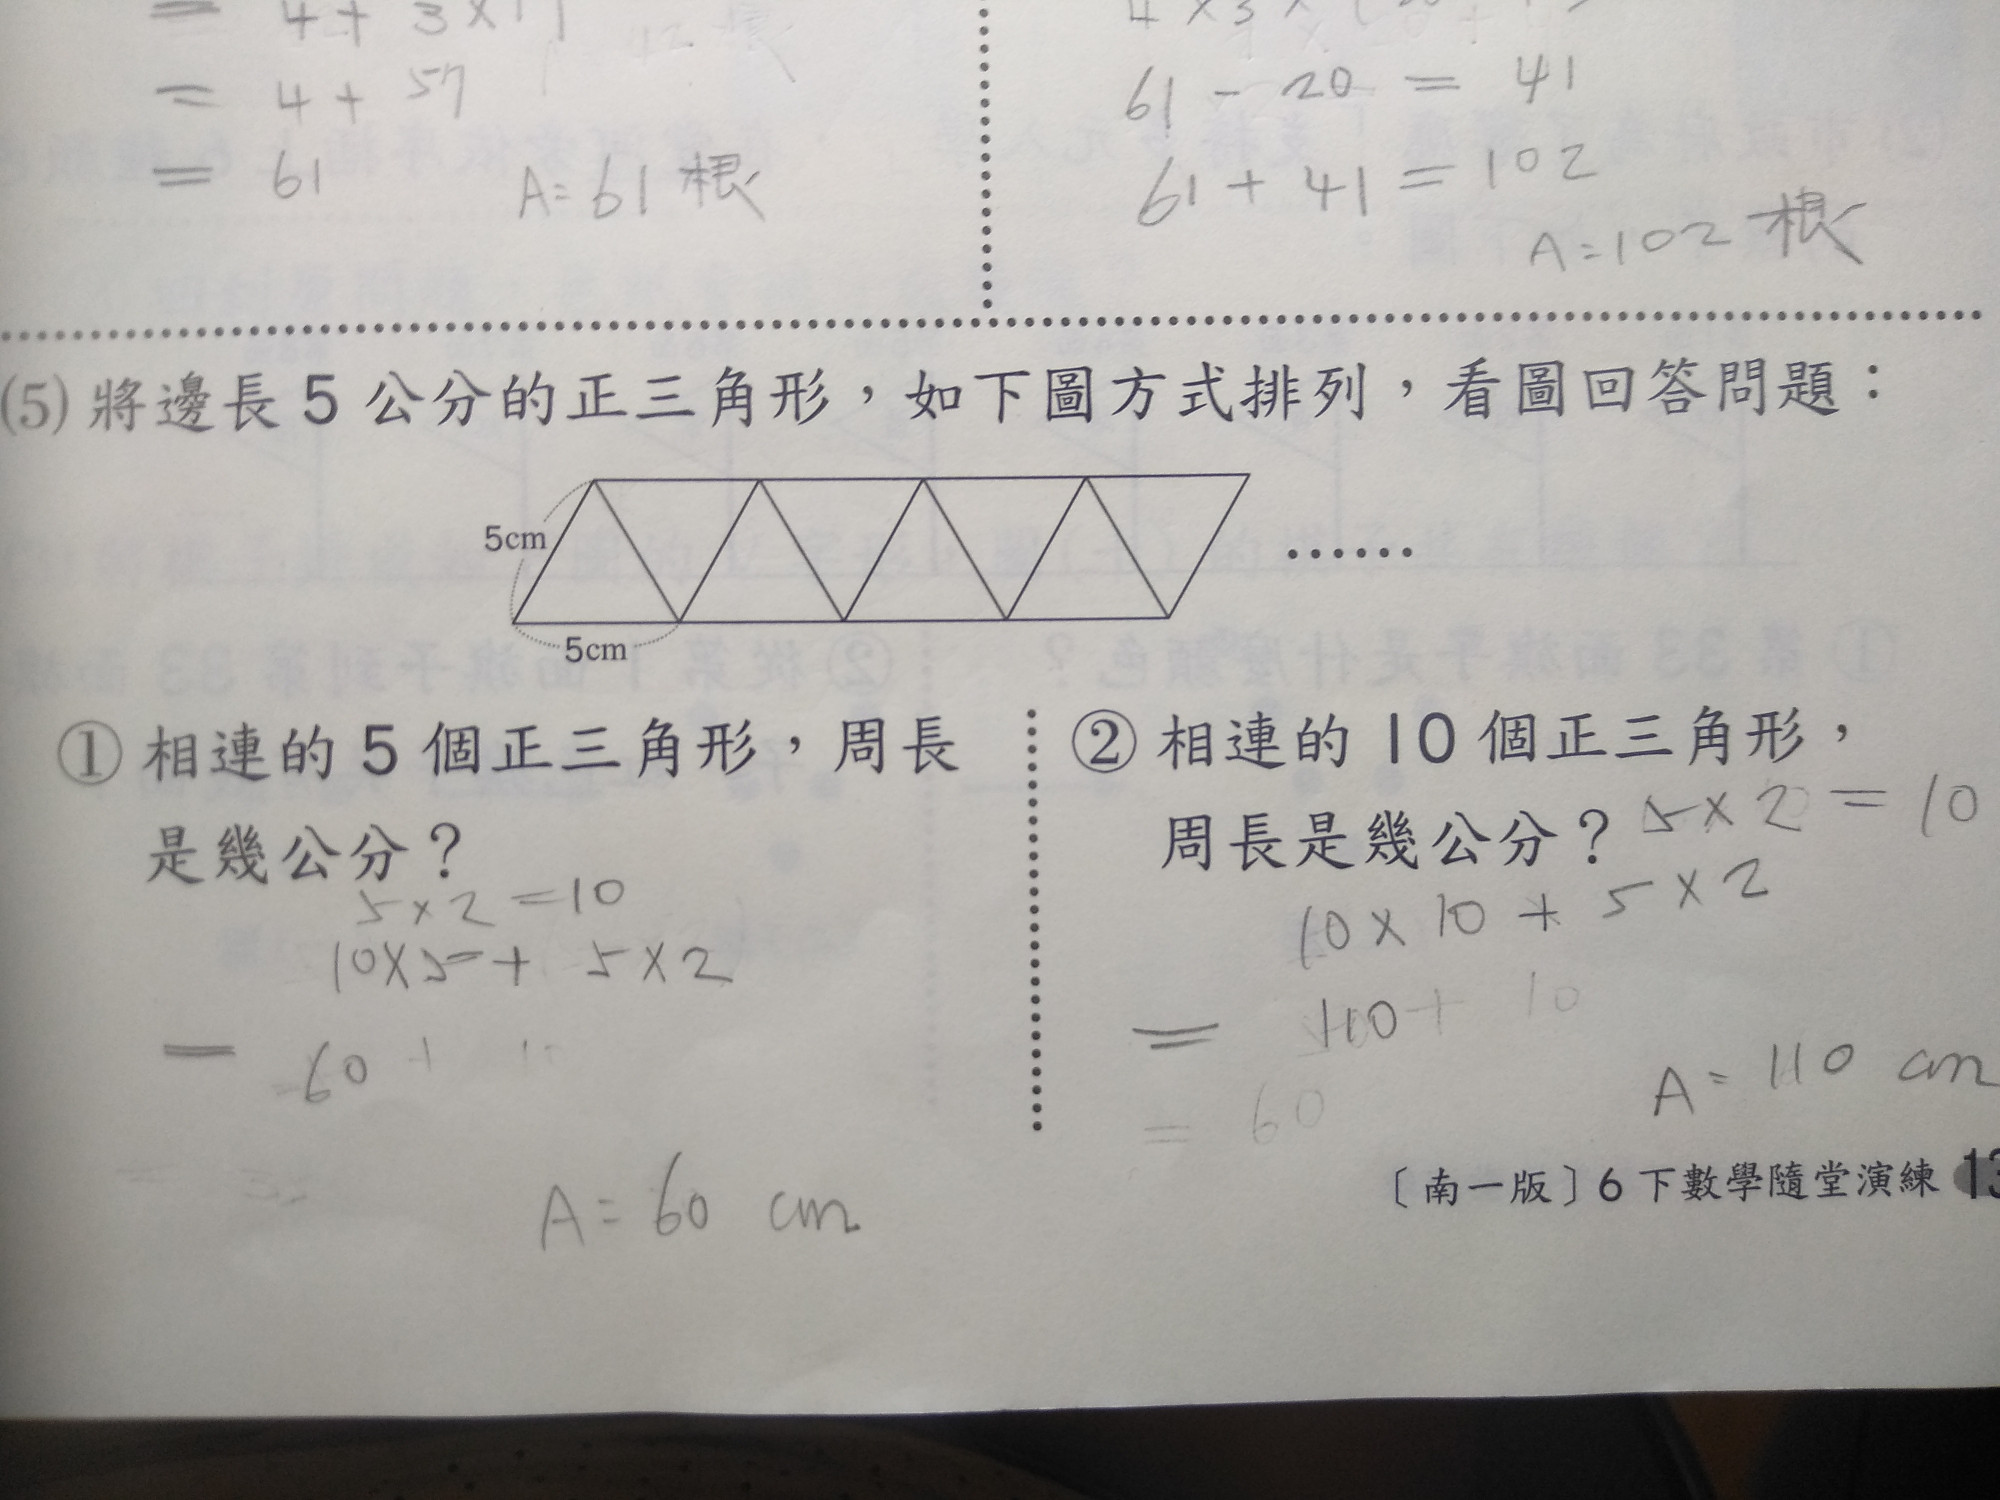 = 4 + 57
= 61 A=61根
61 - 20 = 41
61 + 41 = 102
A=102根
(5) 將邊長5公分的正三角形，如下圖方式排列，看圖回答問題：
5cm
......
5cm
① 相連的5個正三角形，周長
是幾公分？
5×2=10
10×5+ 5×2
60
A=60 cm
② 相連的10個正三角形，
周長是幾公分？ 5×2=10
10×10+5×2
= 110
= 60
A=110 cm
〔南一版〕6下數學隨堂演練